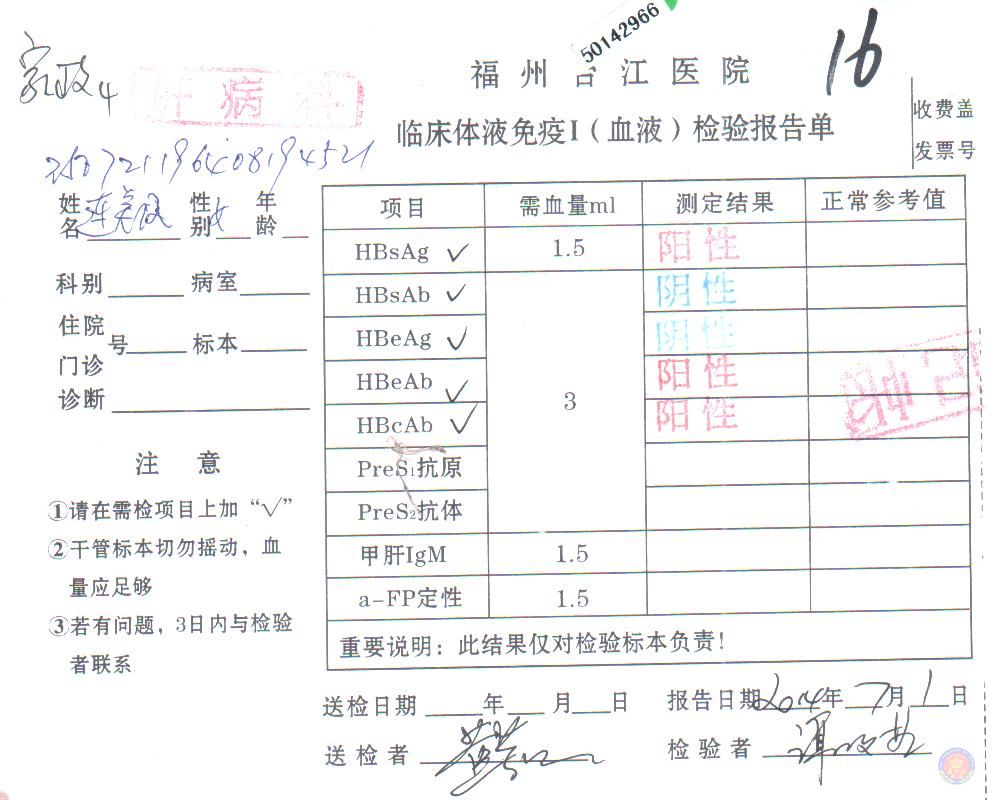 50142966
16
福州台江医院
肝病科
临床体液免疫I（血液）检验报告单
收费盖
发票号
姓名 性别 女 年龄
科别 病室
住院
门诊 号 标本
诊断
项目 需血量ml 测定结果 正常参考值
HBsAg ✓ 1.5 阳性
HBsAb ✓ 3 阴性
HBeAg ✓ 阴性
HBeAb ✓ 阳性
HBcAb ✓ 阳性
PreS₁抗原
PreS₂抗体
甲肝IgM 1.5
a-FP定性 1.5
重要说明：此结果仅对检验标本负责！
注 意
①请在需检项目上加“√”
②干管标本切勿摇动，血
量应足够
③若有问题，3日内与检验
者联系
送检日期 年 月 日 报告日期 2014年 7月 1日
送检者 检验者